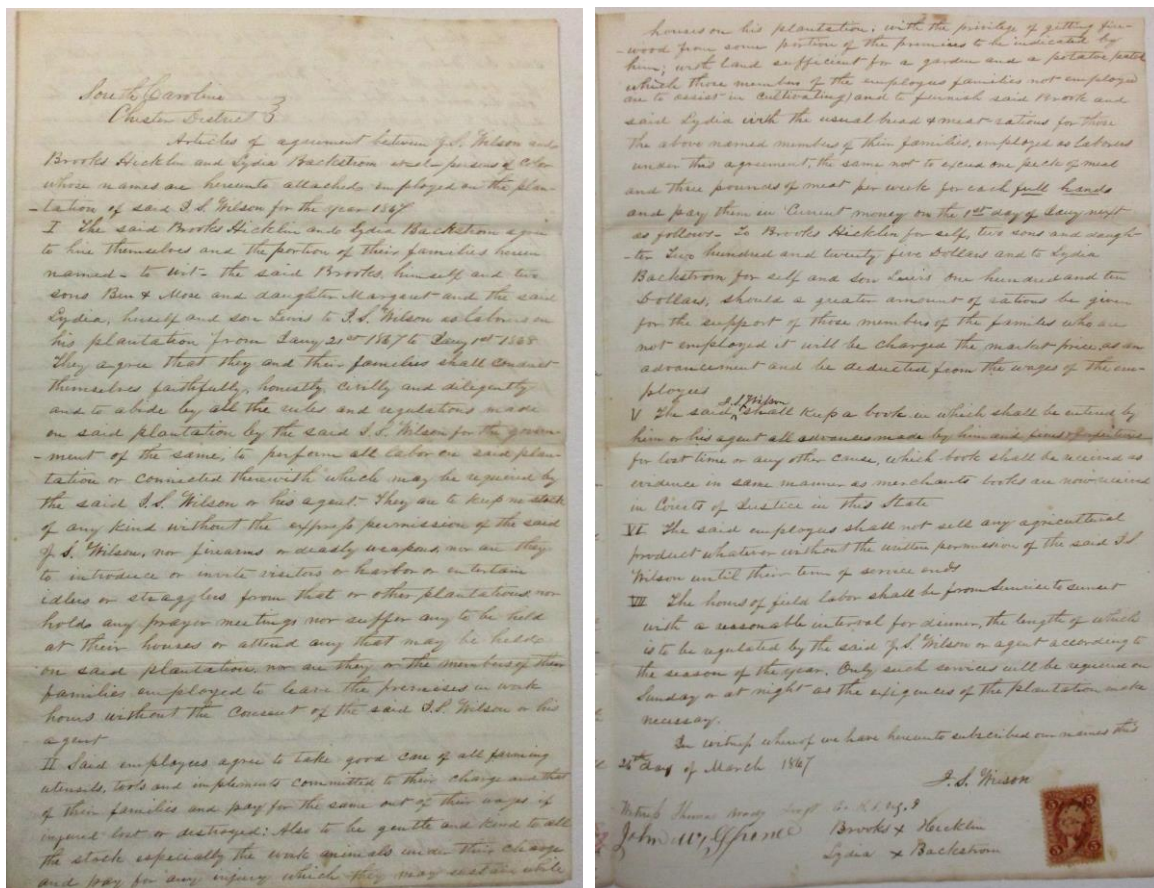 South Carolina
Chester District
Articles of agreement between J. S. Wilson and
Brooks Hicklin and Lydia Backstrom persons of Color
whose names are hereunto attached, employed on the plan-
-tation of said J. S. Wilson for the year 1867
I The said Brooks Hicklin and Lydia Backstrom agree
to hire themselves and the portion of their families herein
named - to wit - the said Brooks, himself and two
sons Ben & Mose and daughter Margaret and the said
Lydia, herself and son Lewis to J. S. Wilson as laborers on
his plantation from Jany 21st 1867 to Jany 1st 1868
They agree that they and their families shall conduct
themselves faithfully, honestly, civilly and diligently
and to abide by all the rules and regulations made
on said plantation by the said J. S. Wilson for the govern-
-ment of the same, to perform all labor on said plan-
tation or connected therewith which may be required by
the said J. S. Wilson or his agent. They are to keep no stock
of any kind without the express permission of the said
J. S. Wilson, nor firearms or deadly weapons, nor are they
to introduce or invite visitors or harbor or entertain
idlers or stragglers from that or other plantations, nor
hold any prayer meetings nor suffer any to be held
at their houses or attend any that may be held
on said plantation, nor are they or the members of their
families employed to leave the premises in work
hours without the consent of the said J. S. Wilson or his
agent
II Said employees agree to take good care of all farming
utensils, tools and implements committed to their charge and that
of their families and pay for the same out of their wages if
injured lost or destroyed; Also to be gentle and kind to all
the stock especially the work animals under their charge
and pay for any injury which they may sustain while
houses on his plantation; with the privilege of getting fire-
-wood from some portion of the premises to be indicated by
him; with land sufficient for a garden and a potatoe patch
which those members of the employees families not employed
are to assist in cultivating) and to furnish said Brook and
said Lydia with the usual bread & meat rations for those
the above named members of their families, employed as laborers
under this agreement, the same not to exceed one peck of meal
and three pounds of meat per week for each full hands
and pay them in Current money on the 1st day of Jany next
as follows - To Brooks Hicklin for self, two sons and daugh-
-ter Two hundred and twenty five Dollars and to Lydia
Backstrom for self and son Lewis One hundred and ten
Dollars, should a greater amount of rations be given
for the support of those members of the families who are
not employed it will be charged the market price as an
advancement and be deducted from the wages of the em-
ployees
V The said J. S. Wilson shall keep a book in which shall be entered by
him or his agent all advances made by him and fines & forfeitures
for lost time or any other cause, which book shall be received as
evidence in same manner as merchants books are now received
in Courts of Justice in this State
VI The said employees shall not sell any agricultural
product whatever without the written permission of the said J. S.
Wilson until their term of service ends
VII The hours of field labor shall be from Sunrise to sunset
with a reasonable interval for dinner, the length of which
is to be regulated by the said J. S. Wilson or agent according to
the season of the year. Only such services will be required on
Sunday or at night as the exigences of the plantation make
necessary.
In witness whereof we have hereunto subscribed our names this
26th day of March 1867
J. S. Wilson
Witness Thomas
John
Brooks x Hicklin
Lydia x Backstrom
5 5